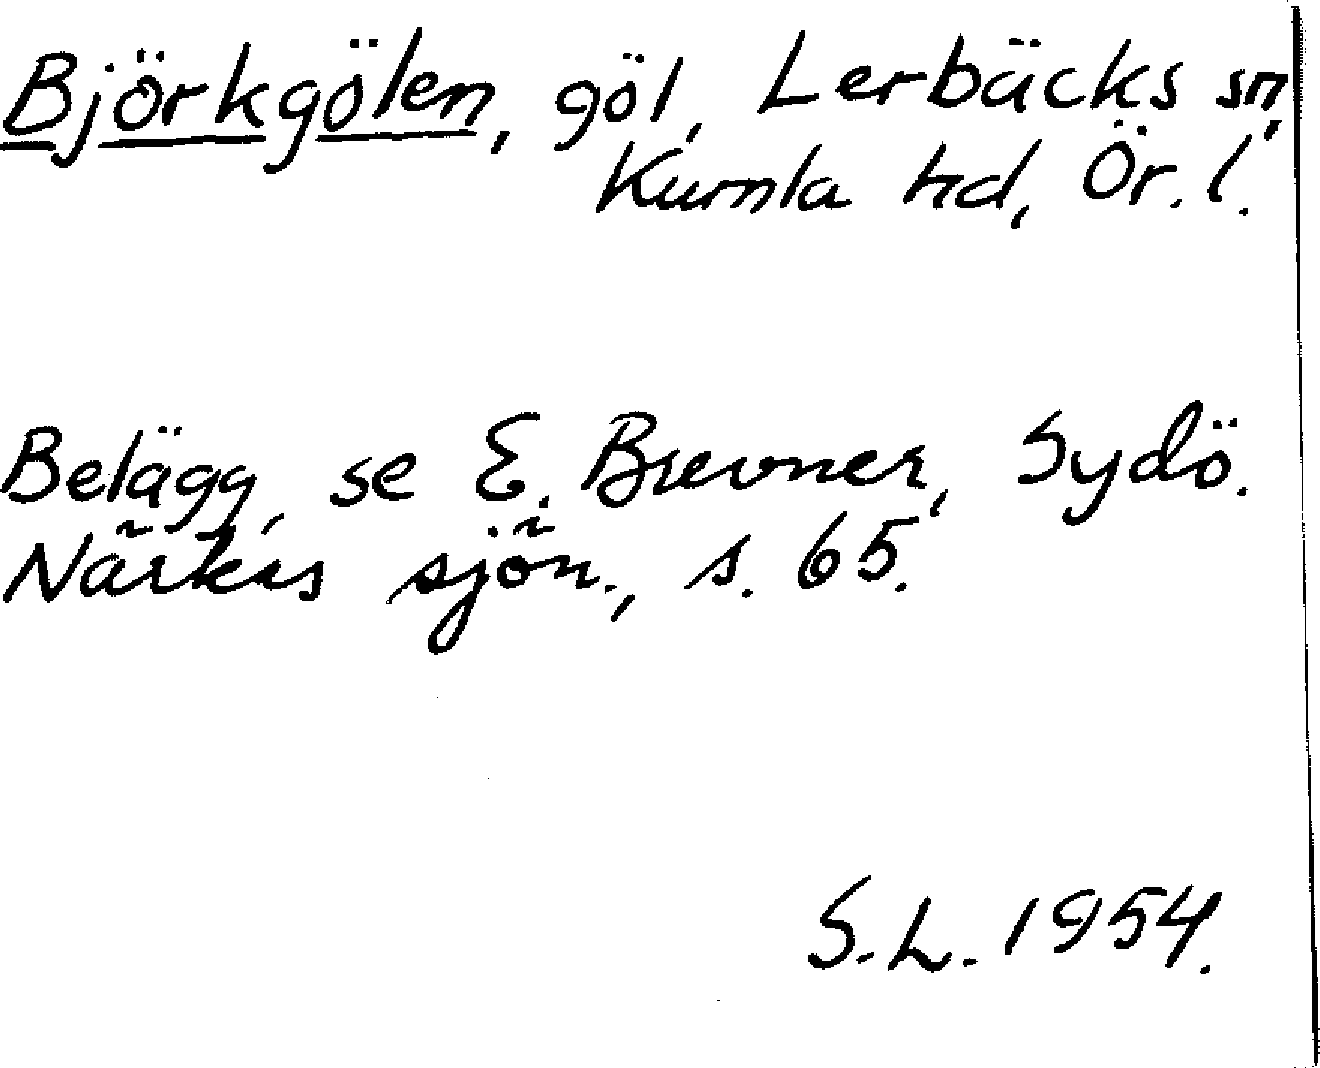 Björkgölen, göl, Lerbäcks sn,
Kumla hd, Ör. l.
Belägg, se E. Brevner, Sydö.
Närkes sjön., s. 65.
S.L. 1954.